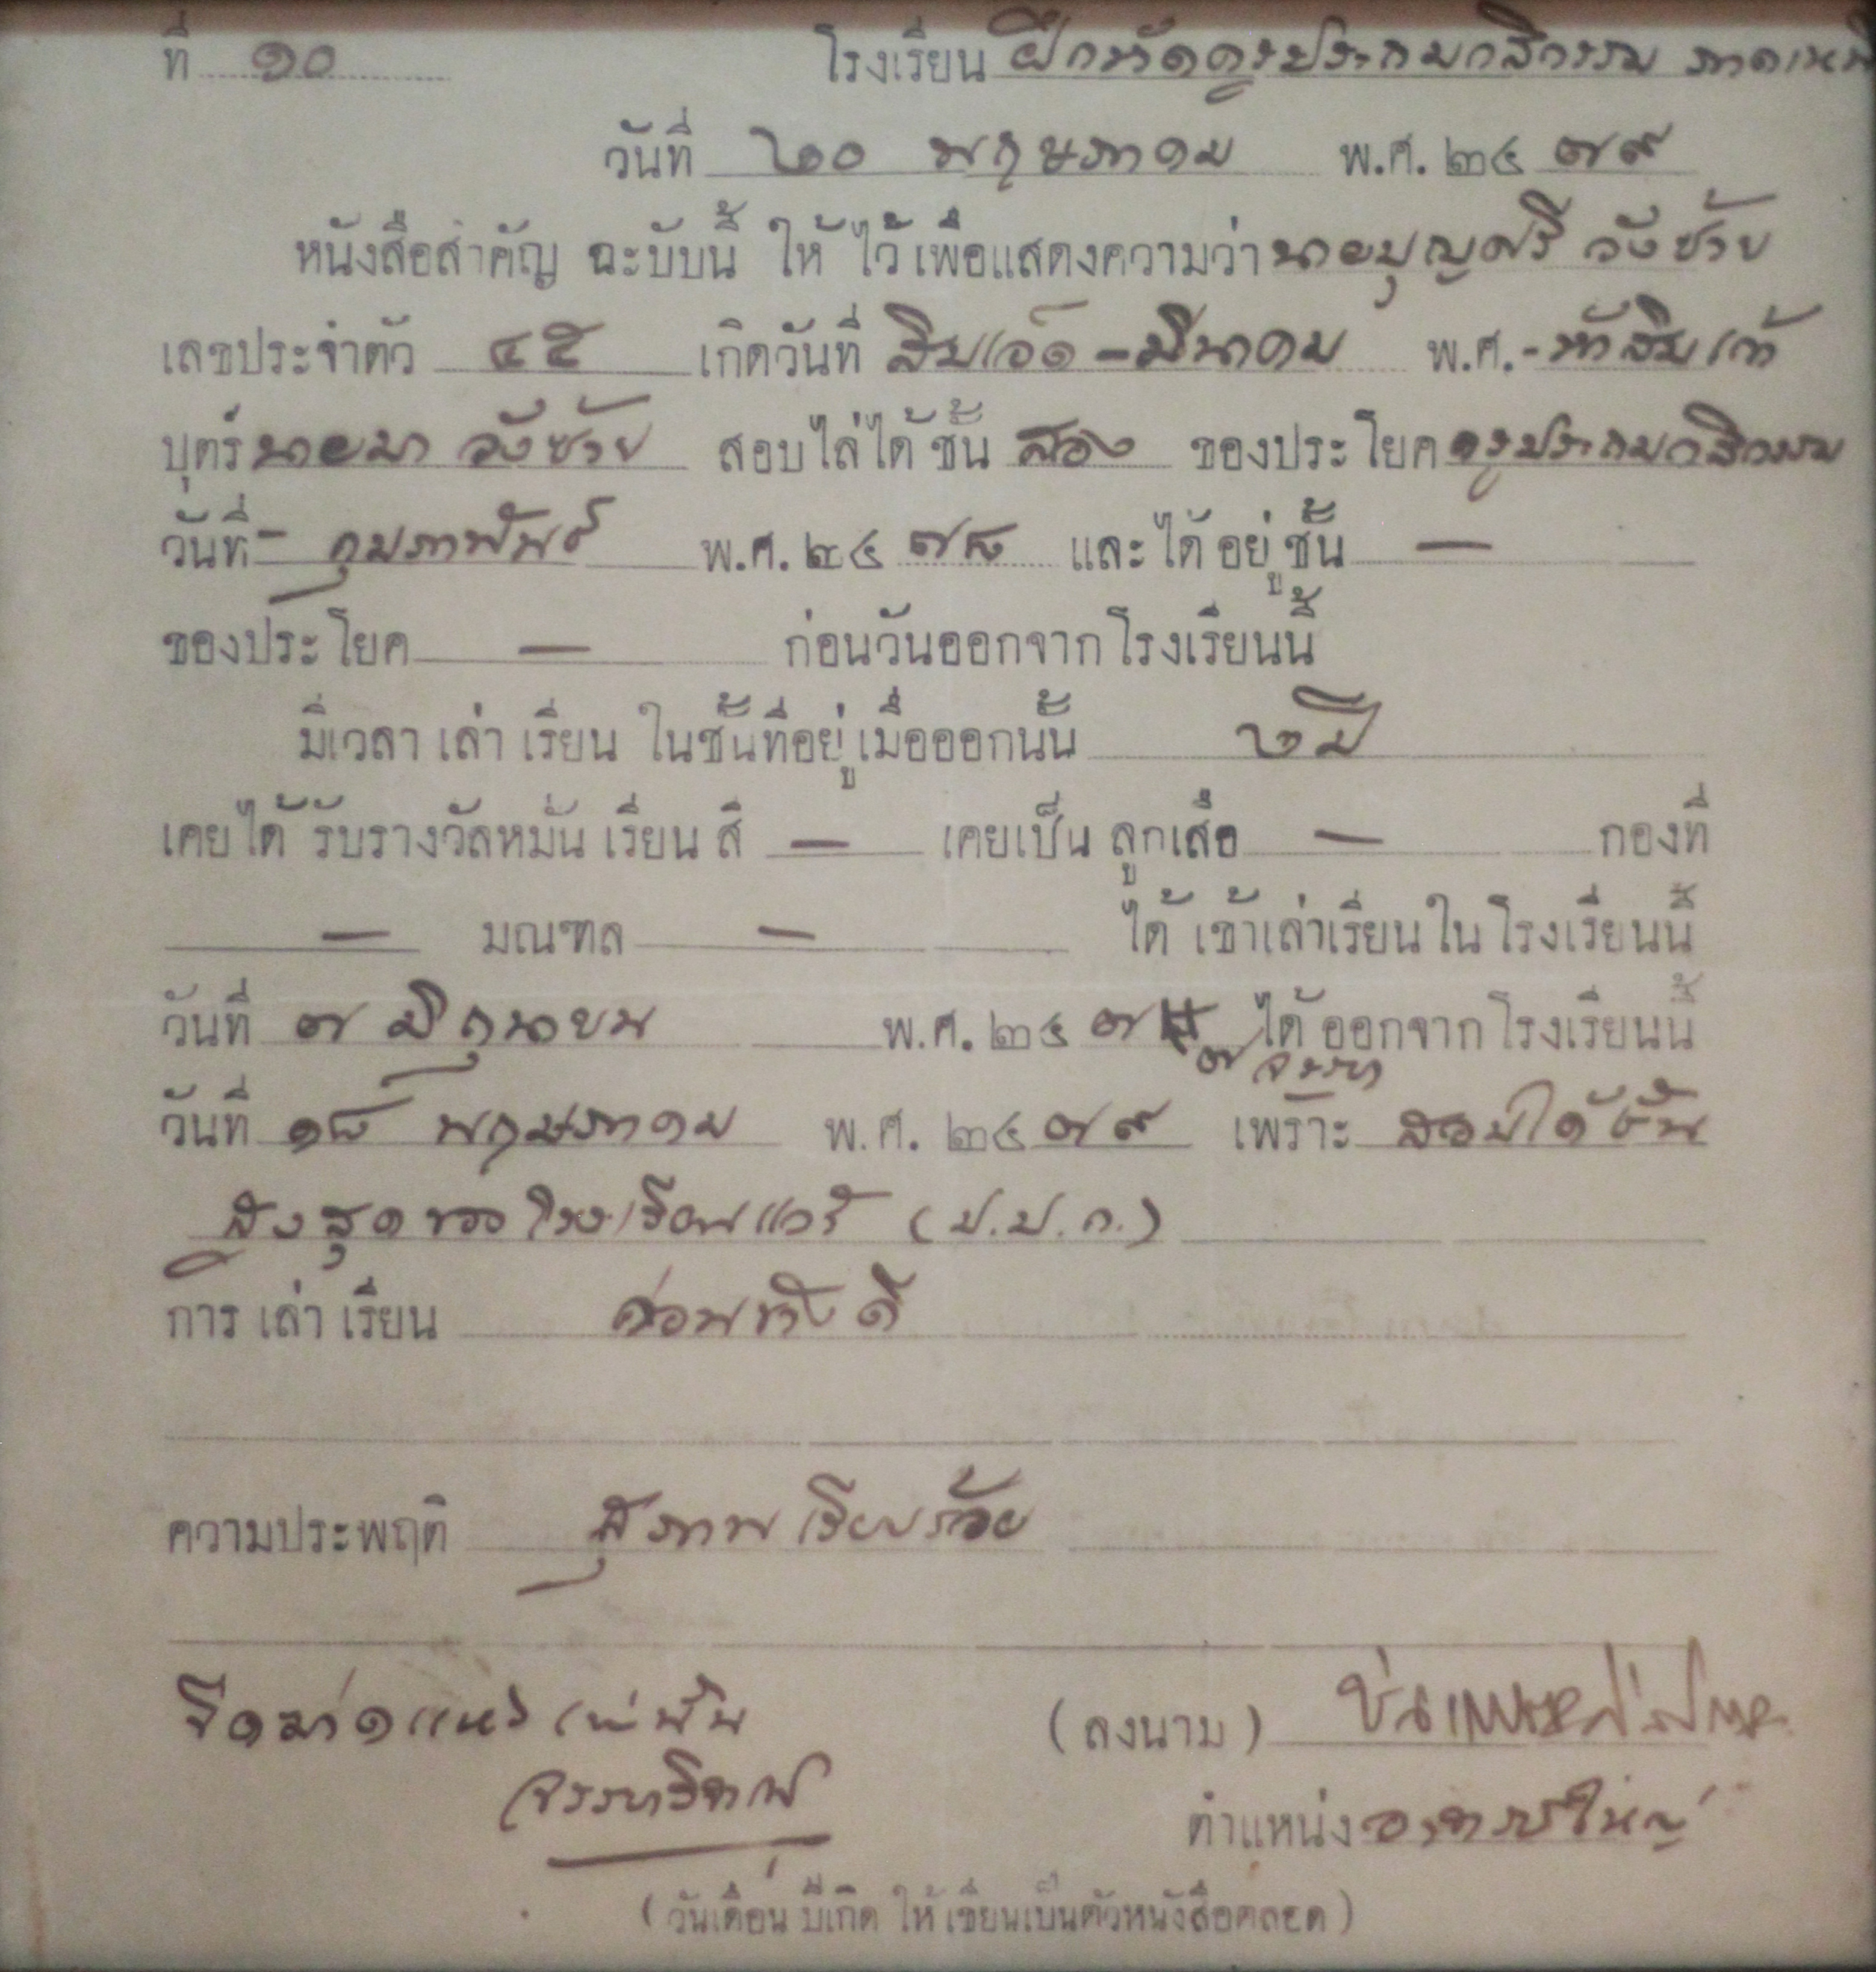 ที่ ๑๐ โรงเรียน ฝึกหัดครูประถมกสิกรรม ภาคเหนือ
วันที่ ๒๐ พฤษภาคม พ.ศ. ๒๔๗๙
หนังสือสำคัญ ฉะบับนี้ ให้ ไว้ เพื่อแสดงความว่า นายบุญศรี วังซ้าย
เลขประจำตัว ๔๕ เกิดวันที่ สิบเอ็ด - มีนาคม พ.ศ. - ห้าสิบเก้า
บุตร์ นายมา วังซ้าย สอบไล่ได้ ชั้น สอง ของประโยค ครูประถมกสิกรรม
วันที่ - กุมภาพันธ์ พ.ศ. ๒๔๗๘ และได้ อยู่ ชั้น —
ของประโยค — ก่อนวันออกจากโรงเรียนนี้
มีเวลา เล่า เรียน ในชั้นที่อยู่ เมื่อออกนั้น ๒ ปี
เคยได้ รับรางวัลหมั่น เรียน สี — เคยเป็น ลูกเสือ — กองที่
— มณฑล — ได้ เข้าเล่าเรียน ใน โรงเรียนนี้
วันที่ ๗ มิถุนายน พ.ศ. ๒๔๗ ๗ ได้ ออกจากโรงเรียนนี้
วันที่ ๑๘ พฤษภาคม พ.ศ. ๒๔๗๙ เพราะ สอบได้ชั้น
สูงสุดของโรงเรียนแล้ว (ป.ป.ก.)
การ เล่า เรียน ค่อนข้างดี
ความประพฤติ สุภาพเรียบร้อย
(ลงนาม)
ตำแหน่ง อาจารย์ใหญ่
(วันเดือน ปีเกิด ให้ เขียนเป็นตัวหนังสือตลอด)